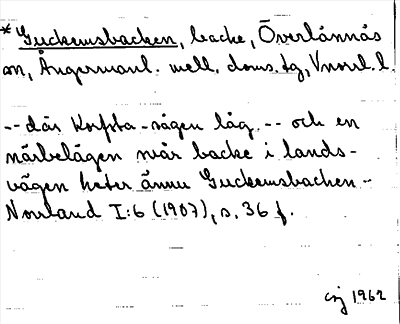 * Guckemsbacken, backe, Överlännäs
sn, Ångermanl. mell. doms. tg, Vnorrl. l.
-- där Korpsta-vägen låg. -- och en
närbelägen svår backe i lands-
vägen heter ännu Guckemsbacken --
Norrland I:6 (1907), s. 36 f.
1962